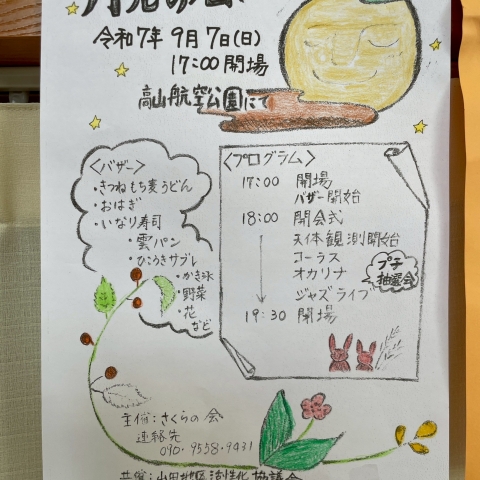 月見の会
令和7年 9月7日(日)
17:00 開場
高山航空公園にて
<バザー>
・きつねもち麦うどん
・おはぎ
・いなり寿司
・雲パン
・ひこうきサブレ
・かき氷
・野菜
・花
など
<プログラム>
17:00 開場
バザー開始
18:00 開会式
天体観測開始
コーラス
オカリナ
ジャズライブ
19:30 閉場
プチ
抽選会
主催:さくらの会
連絡先
090-9558-9431
共催:山田地区活性化協議会